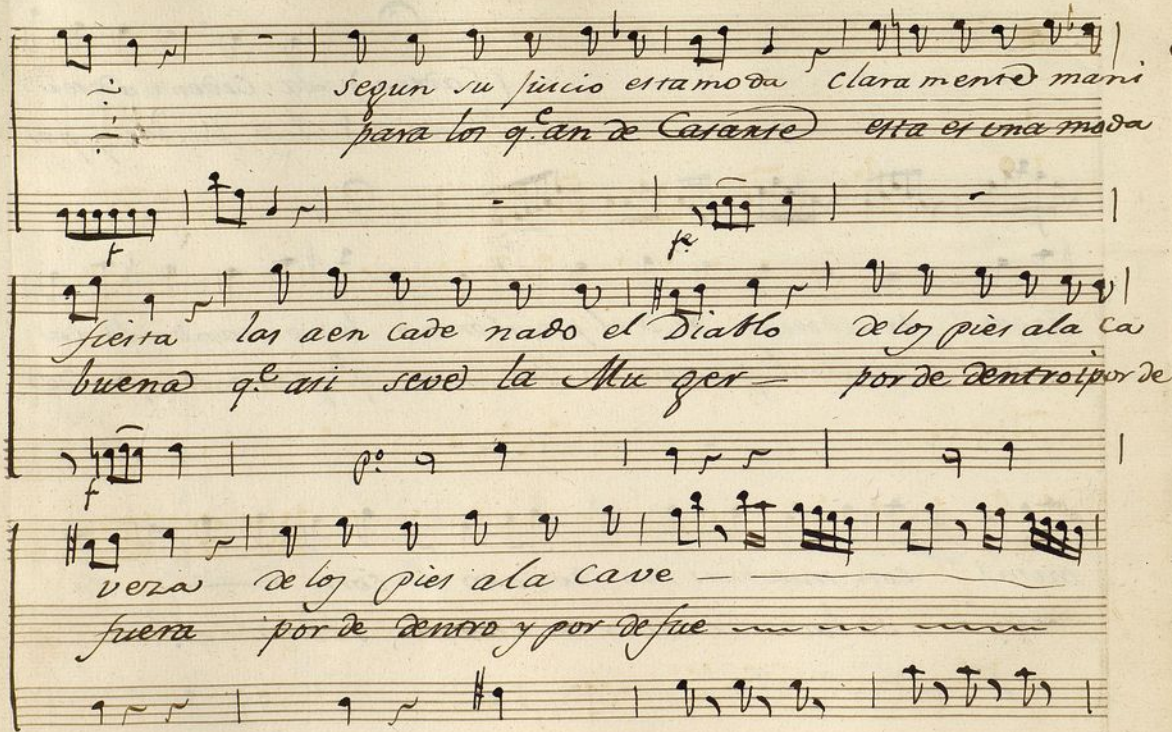 segun su juicio esta moda clara mente mani
para los q.e an de Casarse esta es una moda
f
fe
fiesta las aen cade nado el Diablo de los pies ala ca
buena q.e asi seve la Mu ger — por de dentro i por de
f
p.o
veza de los pies ala cave —
fuera por de dentro y por de fue